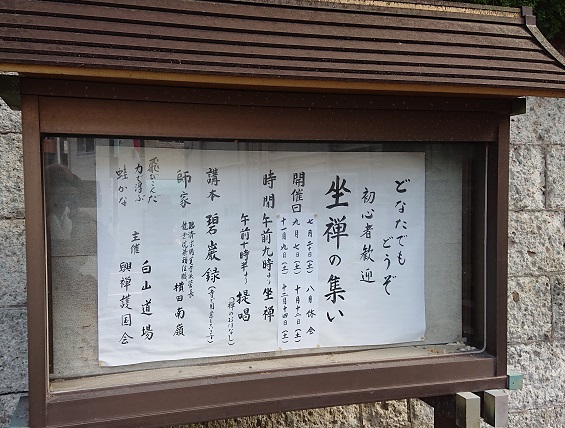 どなたでも
どうぞ
初心者歓迎
坐禅の集い
開催日
七月二十日(土) 八月 休会
九月七日(土) 十月十二日(土)
十一月九日(土) 十二月十四日(土)
時間 午前九時より 坐禅
午前十時半より 提唱
(禅のおはなし)
講本 碧巌録
師家
横田南嶺
飛びこんだ
力で浮ぶ
蛙かな
主催 白山道場
興禅護国会